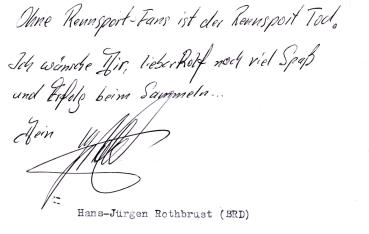 Ohne Rennsport-Fans ist der Rennsport Tod.
Ich wünsche Dir, lieber Rolf noch viel Spaß
und Erfolg beim Sammeln...
Dein
Hans-Jürgen Rothbrust (BRD)